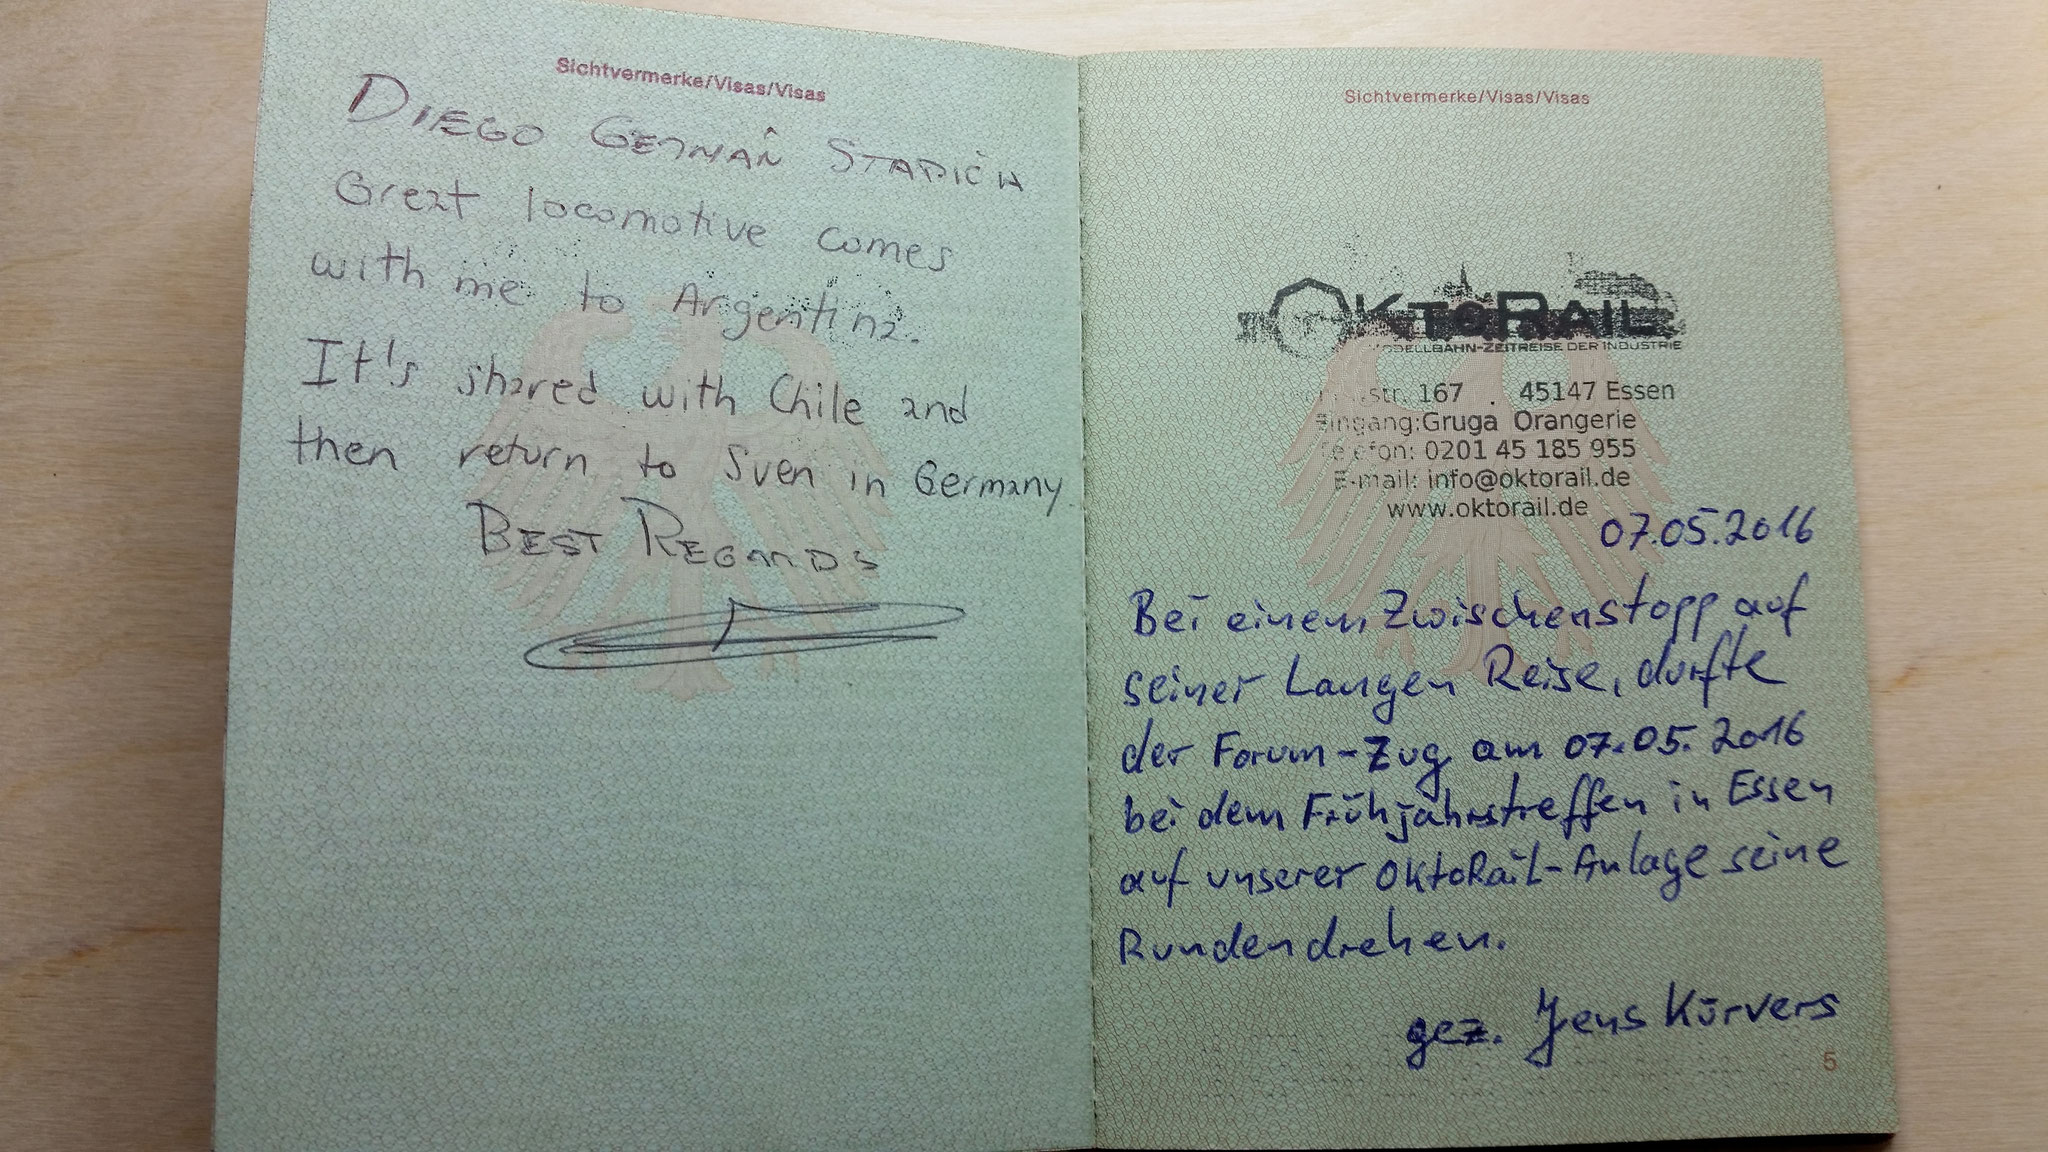 Sichtvermerke/Visas/Visas
DIEGO GERMAN
Great locomotive comes
with me to Argentina.
It's shared with Chile and
then return to Sven in Germany
BEST REGARDS
Sichtvermerke/Visas/Visas
OKTORAIL
MODELLBAHN-ZEITREISE DER INDUSTRIE
167 . 45147 Essen
Eingang:Gruga Orangerie
Telefon: 0201 45 185 955
E-mail: info@oktorail.de
www.oktorail.de
07.05.2016
Bei einem Zwischenstopp auf
seiner Langen Reise, durfte
der Forum-Zug am 07.05.2016
bei dem Frühjahrstreffen in Essen
auf unserer OktoRail-Anlage seine
Runden drehen.
gez. Jens Kürvers
5